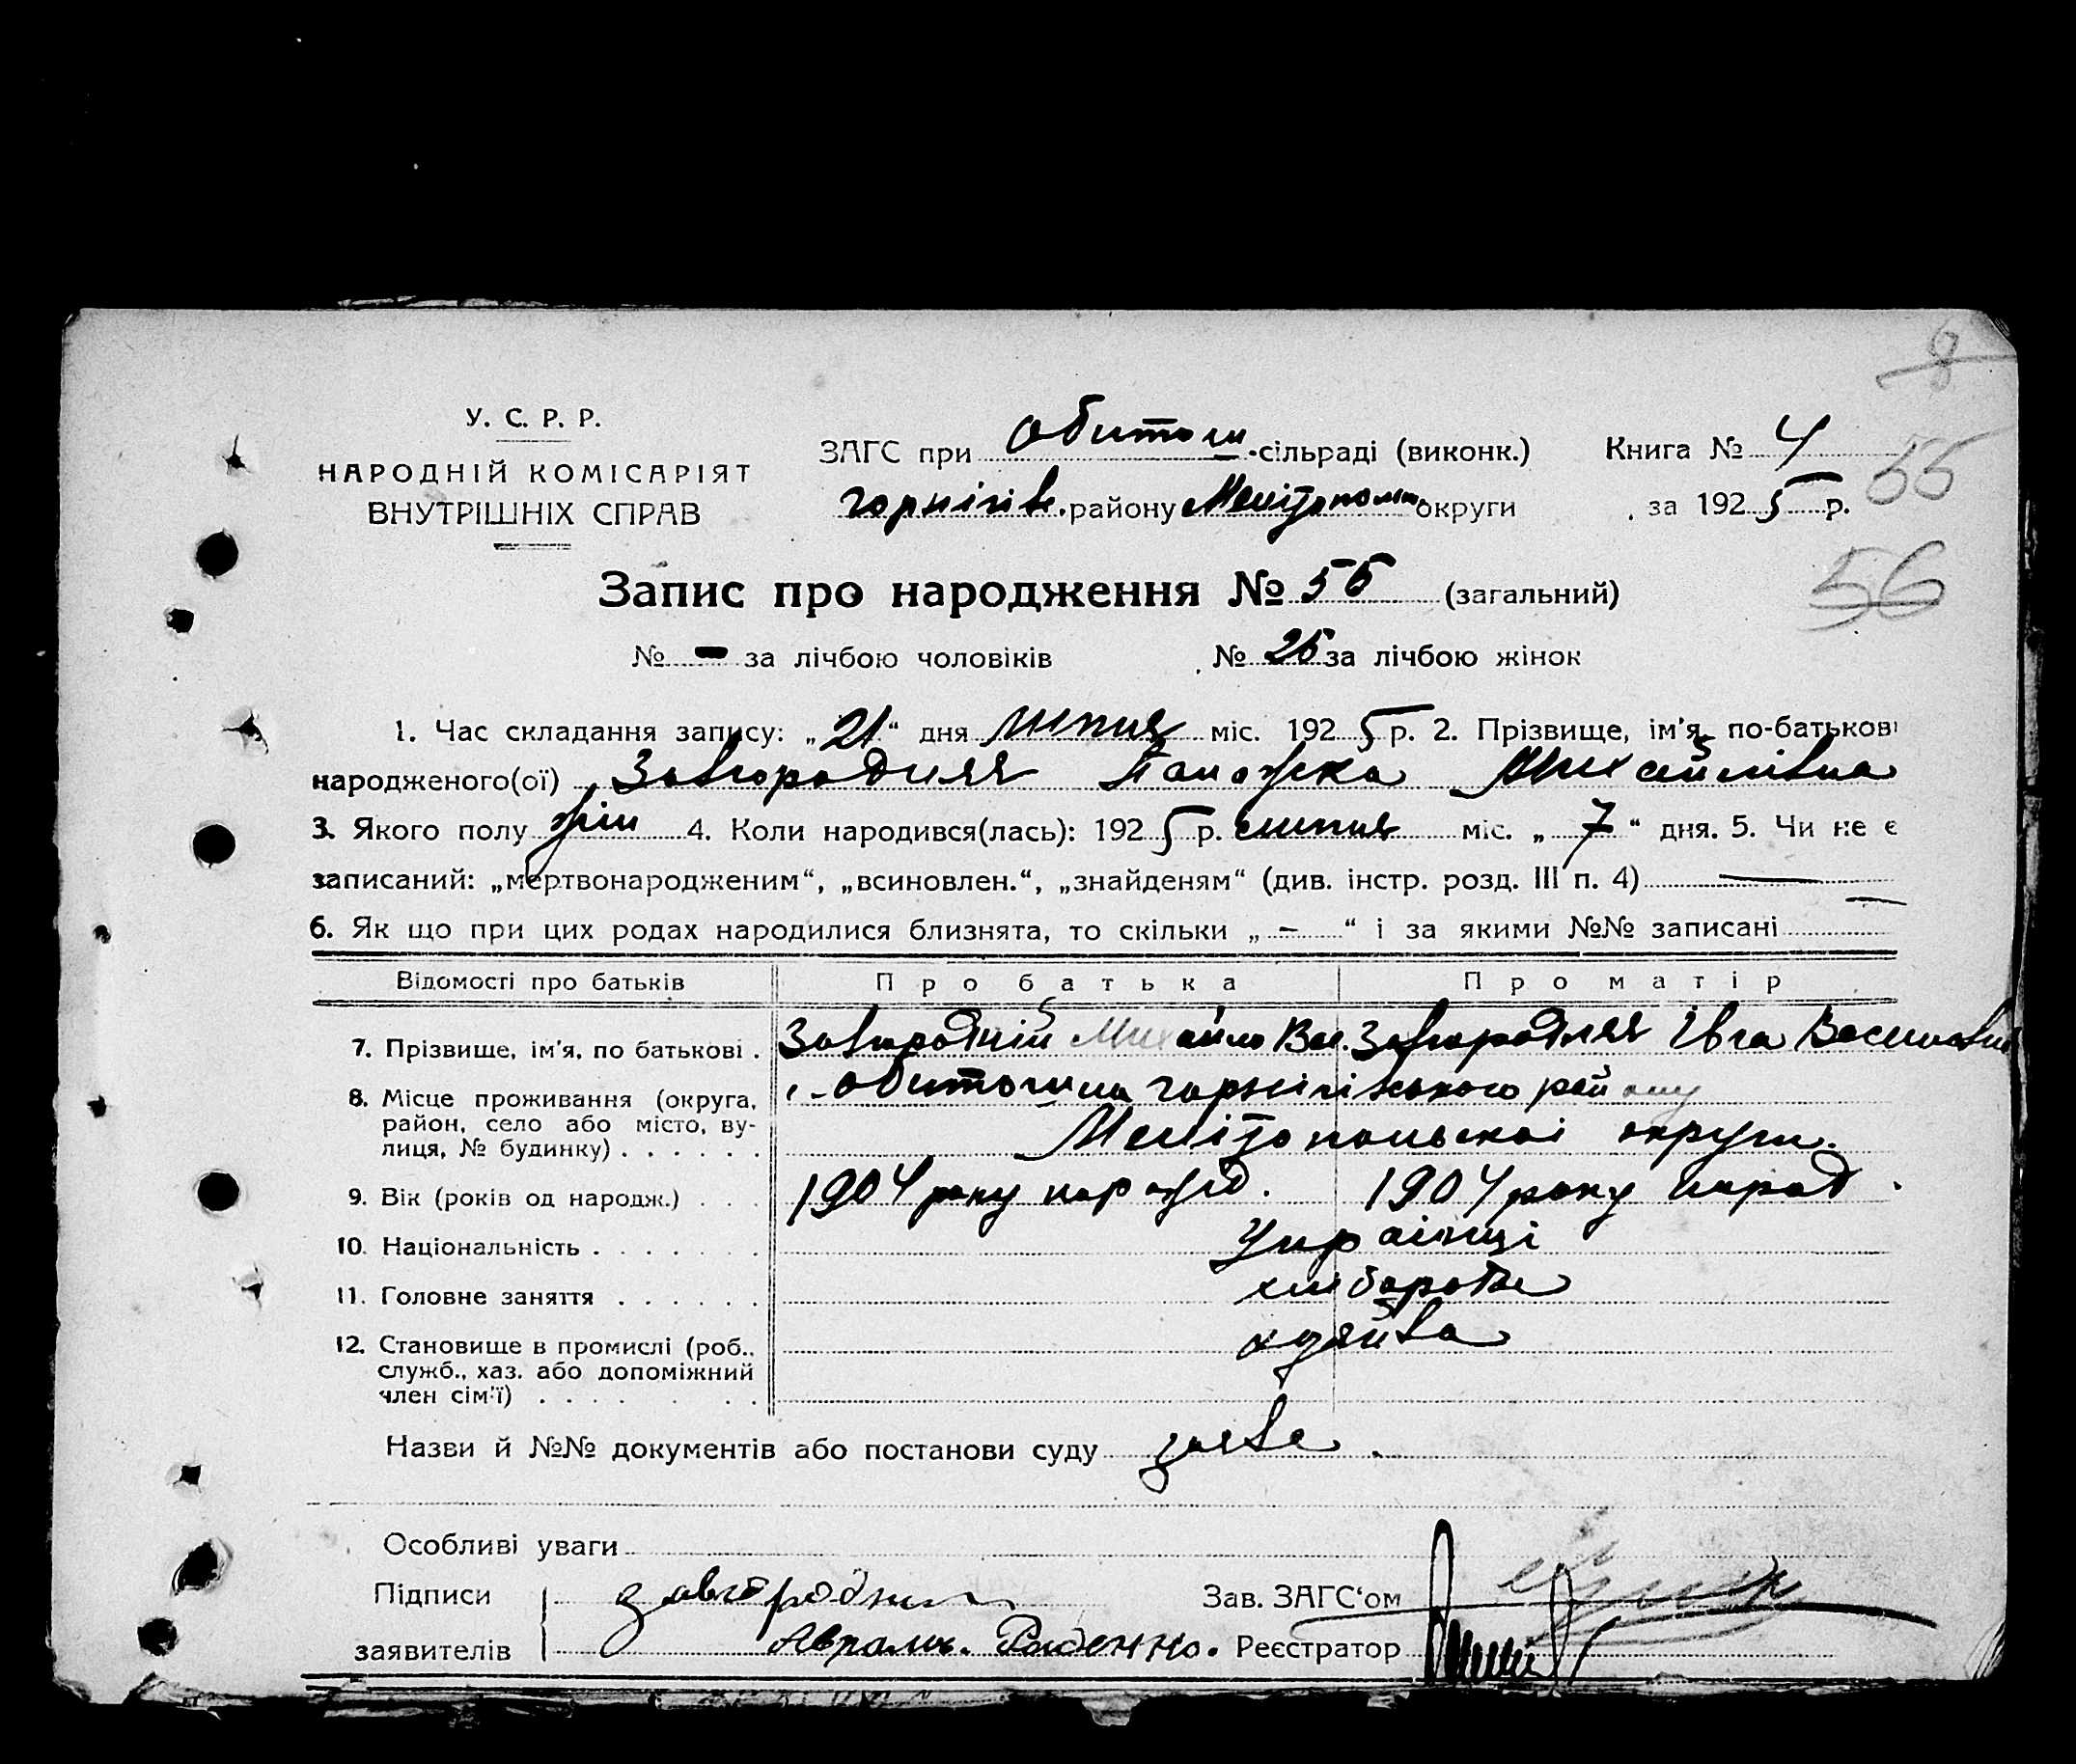 8
У. С. Р. Р.
НАРОДНІЙ КОМІСАРІЯТ
ВНУТРІШНІХ СПРАВ
ЗАГС при Обиточн. сільраді (виконк.)
Чорнігів. району Мелітопольс округи
Книга № 4
за 1925 р.
55
56
Запис про народження № 55 (загальний)
№ - за лічбою чоловіків № 25 за лічбою жінок
1. Час складання запису: „21“ дня липня міс. 1925 р. 2. Прізвище, ім'я, по-батькові
народженого(ої) Завгородняя Михайлівна
3. Якого полу жін 4. Коли народився(лась): 1925 р. липня міс. „7“ дня. 5. Чи не є
записаний: „мертвонародженим“, „всиновлен.“, „знайденям“ (див. інстр. розд. III п. 4) —
6. Як що при цих родах народилися близнята, то скільки „-“ і за якими №№ записані
Відомості про батьків Про батька Про матір
7. Прізвище, ім'я, по батькові . Завгородній Михайло Вас. Завгородняя Івга Василівна
8. Місце проживання (округа, район, село або місто, вулиця, № будинку) . . . . . . с. Обиточна Чорнігівського району
Мелітопольскої округи.
9. Вік (років од народж.) . . . 1904 року народ. 1904 року народ.
10. Національність . . . . . . Українці
11. Головне заняття . . . . . . хліборобе
12. Становище в промислі (роб., служб., хаз. або допоміжний член сім'ї) . . . . . . хазяйва
Назви й №№ документів або постанови суду заява.
Особливі уваги
Підписи Завгородни Зав. ЗАГС'ом
заявителів Реєстратор